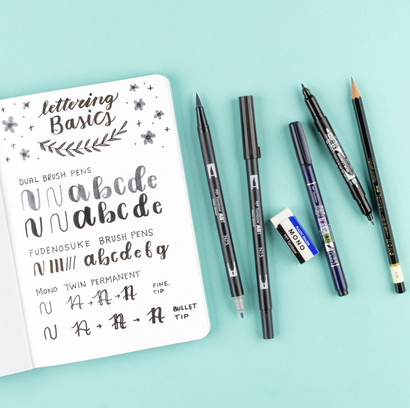 lettering
Basics
DUAL BRUSH PENS
abcde
abcde
FUDENOSUKE BRUSH PENS
abcdefg
MONO TWIN PERMANENT
FINE
TIP
BULLET
TIP
MONO
N15